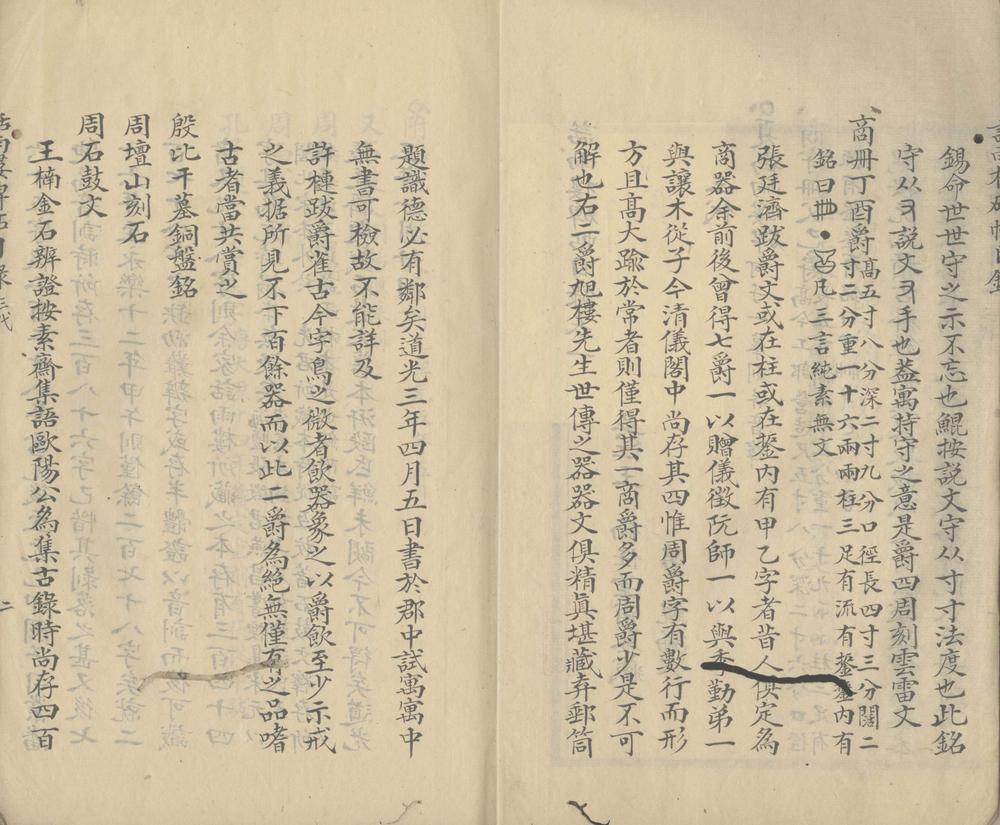 錫命世世守之示不忘也鯤按說文守从寸寸法度也此銘
守从又說文又手也葢寓持守之意是爵四周刻雲雷文
商冊丁酉爵高五寸八分深二寸九分口徑長四寸三分闊二
寸二分重一十六兩兩柱三足有流有鋬鋬內有
銘曰
凡三言純素無文
張廷濟跋爵文或在柱或在鋬內有甲乙字者昔人俱定為
商器余前後曾得七爵一以贈儀徵阮師一以與季勤弟一
與讓木從子今清儀閣中尚存其四惟周爵字有數行而形
方且高大踰於常者則僅得其一商爵多而周爵少是不可
解也右二爵旭樓先生世傳之器器文俱精眞堪藏弆郵筒
題識德必有鄰矣道光三年四月五日書於郡中試寓寓中
無書可檢故不能詳及
許槤跋爵雀古今字鳥之微者飲器象之以爵飲至少示戒
之義據所見不下百餘器而以此二爵為絕無僅有之品嗜
古者當共賞之
殷比干墓銅盤銘
周壇山刻石
周石鼓文
王楠金石辨證按素齋集語歐陽公為集古錄時尚存四百
二